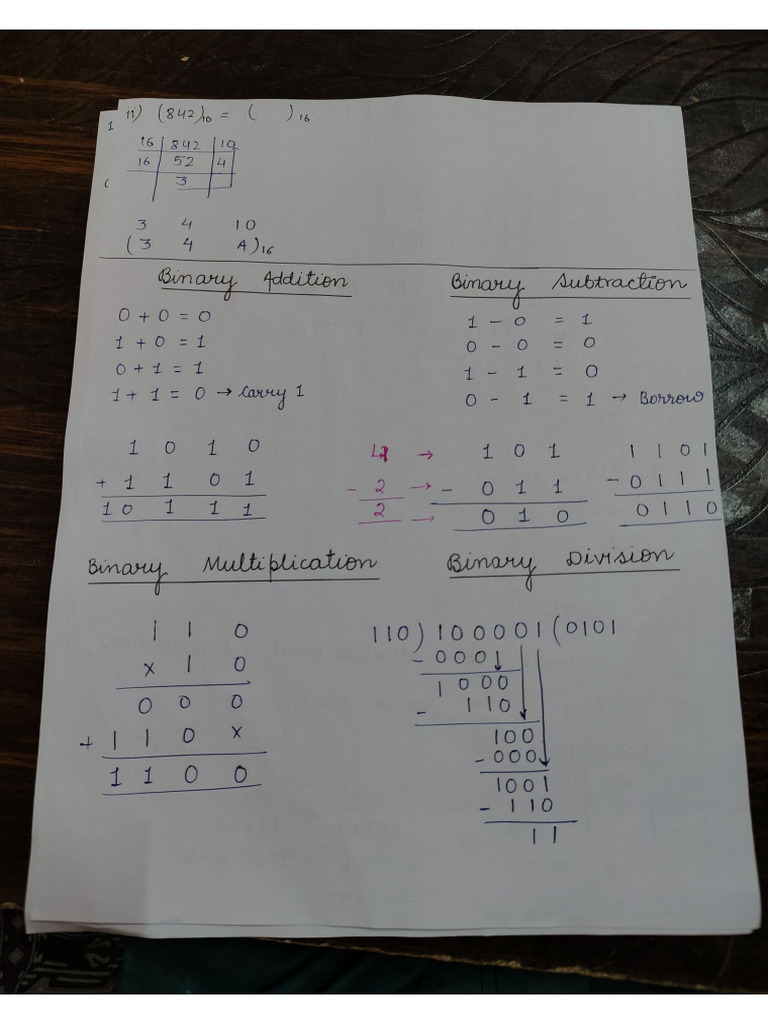 ii) (842)₁₀ = (    )₁₆
1
16 | 842 | 10
16 | 52 | 4
3
3 4 10
(3 4 A)₁₆
Binary Addition
0 + 0 = 0
1 + 0 = 1
0 + 1 = 1
1 + 1 = 0 → Carry 1
1 0 1 0
+ 1 1 0 1
1 0 1 1 1
Binary Subtraction
1 - 0 = 1
0 - 0 = 0
1 - 1 = 0
0 - 1 = 1 → Borrow
→ 1 0 1
- 2 → - 0 1 1
2 → 0 1 0
1 1 0 1
- 0 1 1 1
0 1 1 0
Binary Multiplication
1 1 0
x 1 0
0 0 0
+ 1 1 0 x
1 1 0 0
Binary Division
110 ) 100001 ( 0101
- 000
1000
- 110
100
- 000
1001
- 110
11